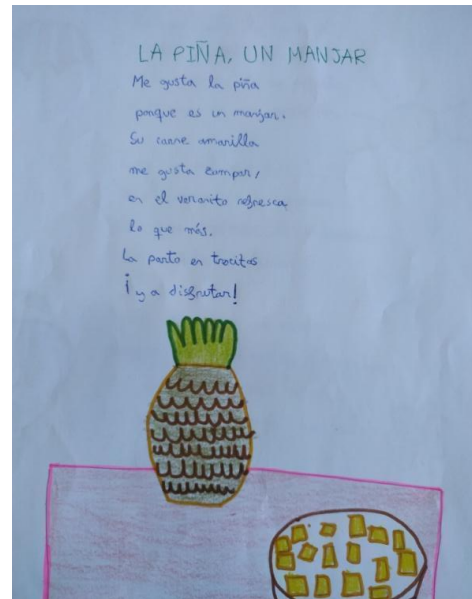 LA PIÑA, UN MANJAR
Me gusta la piña
porque es un manjar.
Su carne amarilla
me gusta zampar,
en el veranito refresca
lo que más.
La parto en trocitos
¡y a disfrutar!